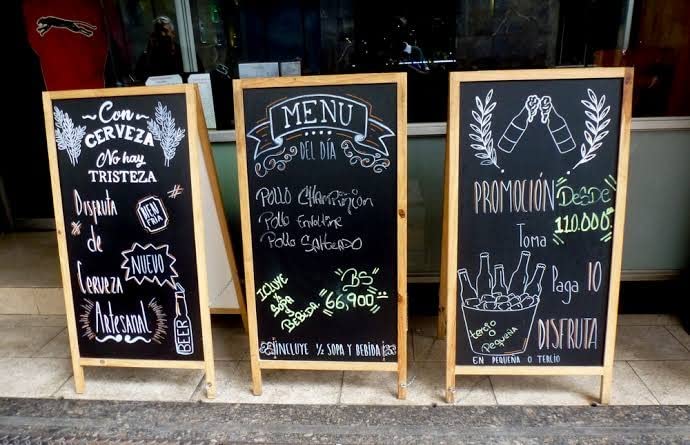 Con
CERVEZA
No hay
TRISTEZA
Disfruta
de
BIEN
FRIA
NUEVO
Cerveza
Artesanal
BEER
MENU
DEL DÍA
POLLO CHAMPIÑON
Pollo
Pollo SALTEADO
ICLUYE
½ SOPA
y
BEBIDA.
BS
66,900
INCLUYE ½ SOPA Y BEBIDA
PROMOCIÓN
DESDE
110.000
Toma
Paga 10
tercio o
pequeña
DISFRUTA
EN PEQUEÑA O TERCIO